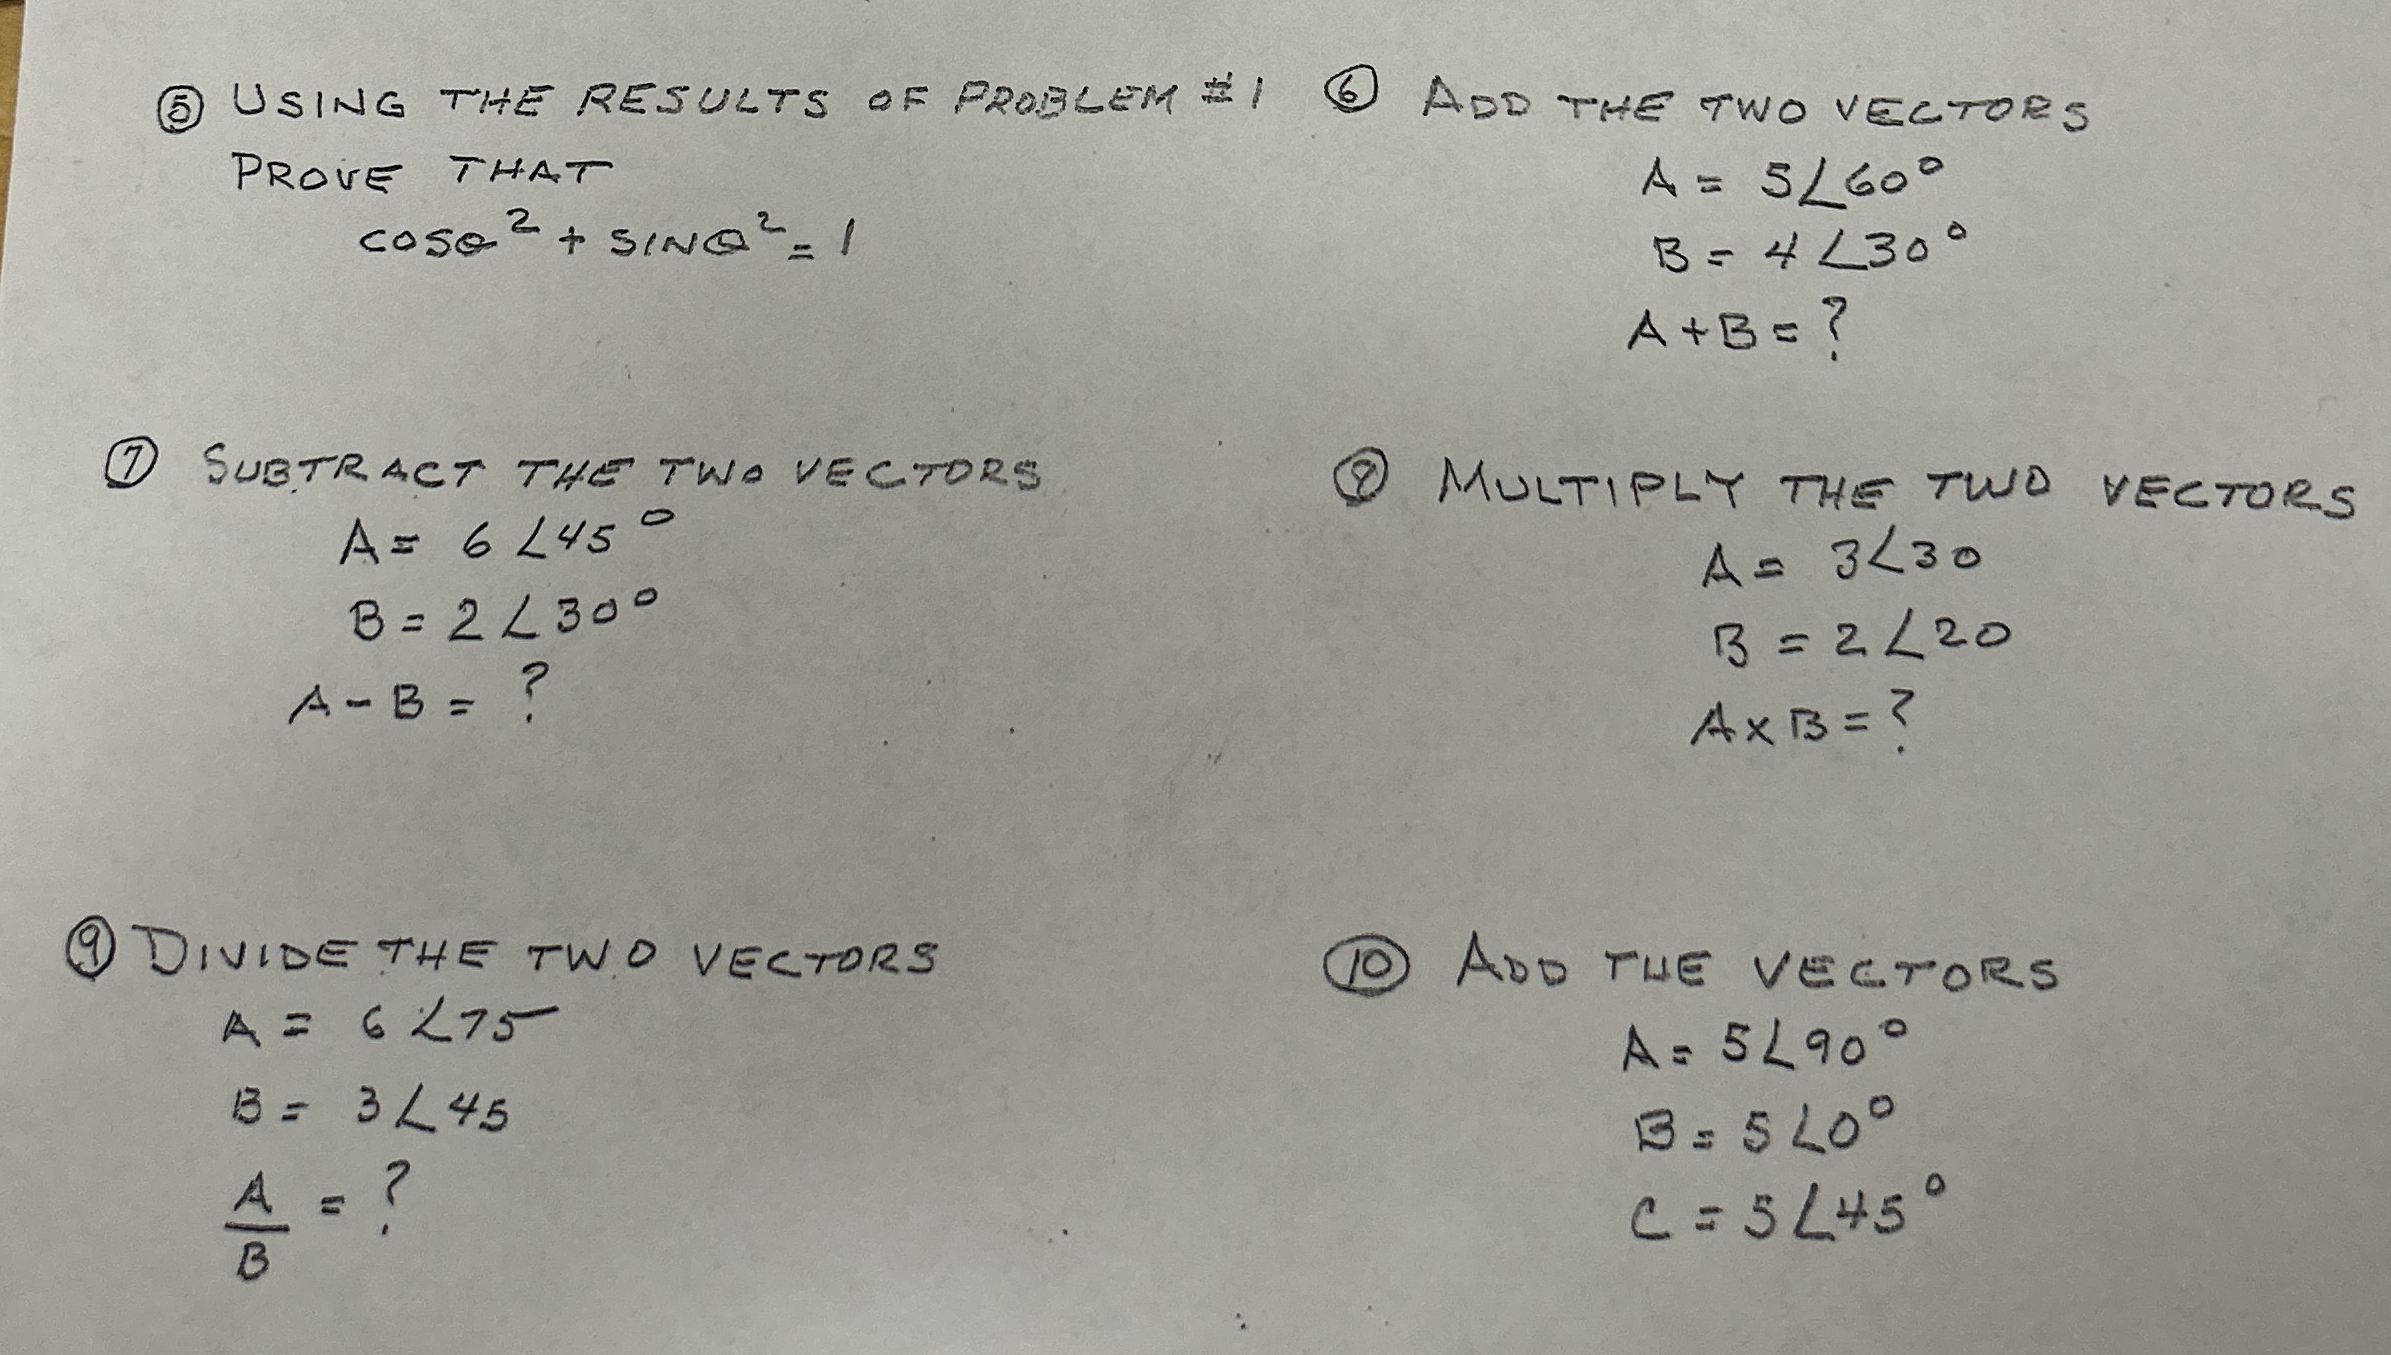 ⑤ USING THE RESULTS OF PROBLEM #1
PROVE THAT
COSθ² + SINθ² = 1
⑥ ADD THE TWO VECTORS
A = 5∠60°
B = 4∠30°
A + B = ?
⑦ SUBTRACT THE TWO VECTORS
A = 6∠45°
B = 2∠30°
A - B = ?
⑧ MULTIPLY THE TWO VECTORS
A = 3∠30
B = 2∠20
A x B = ?
⑨ DIVIDE THE TWO VECTORS
A = 6∠75
B = 3∠45
A/B = ?
⑩ ADD THE VECTORS
A = 5∠90°
B = 5∠0°
C = 5∠45°